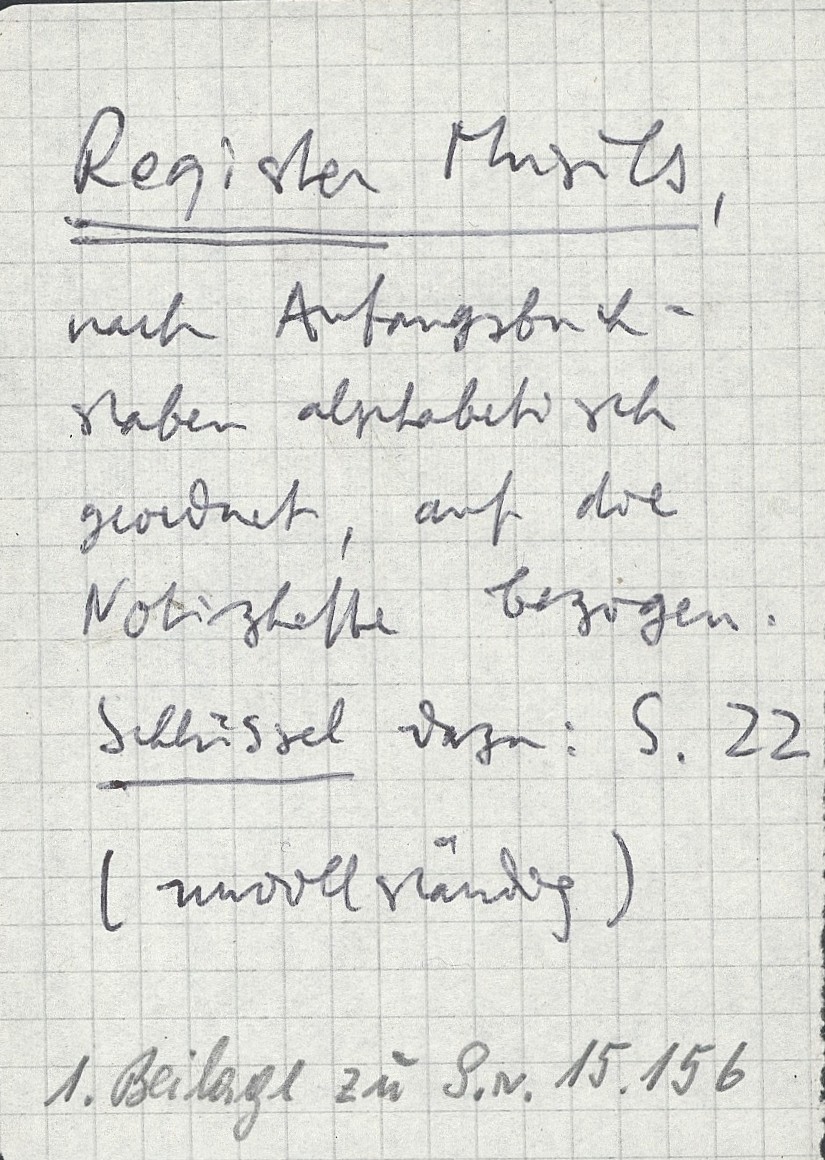 Register Musils,
nach Anfangsbuch-
staben alphabetisch
geordnet, auf die
Notizhefte bezogen.
Schlüssel dazu: S. 22
(unvollständig)
1. Beilage zu S.n. 15.156